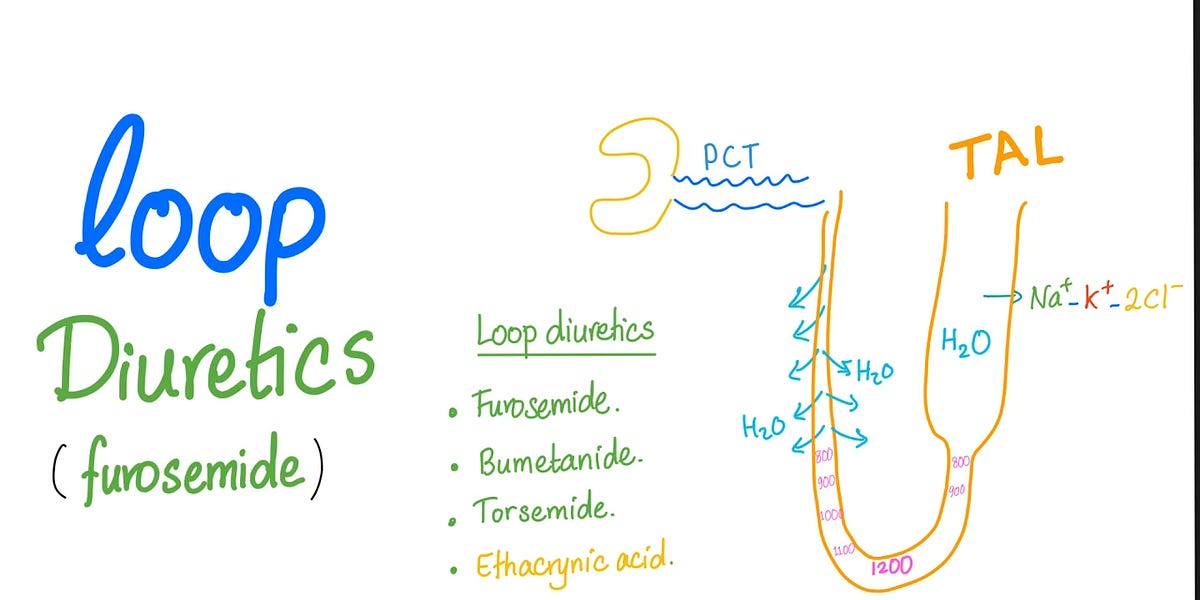 loop
Diuretics
(furosemide)
Loop diuretics
• Furosemide.
• Bumetanide.
• Torsemide.
• Ethacrynic acid.
PCT
TAL
Na⁺-K⁺-2Cl⁻
H₂O
H₂O
H₂O
800
900
1000
1100
1200
800
900